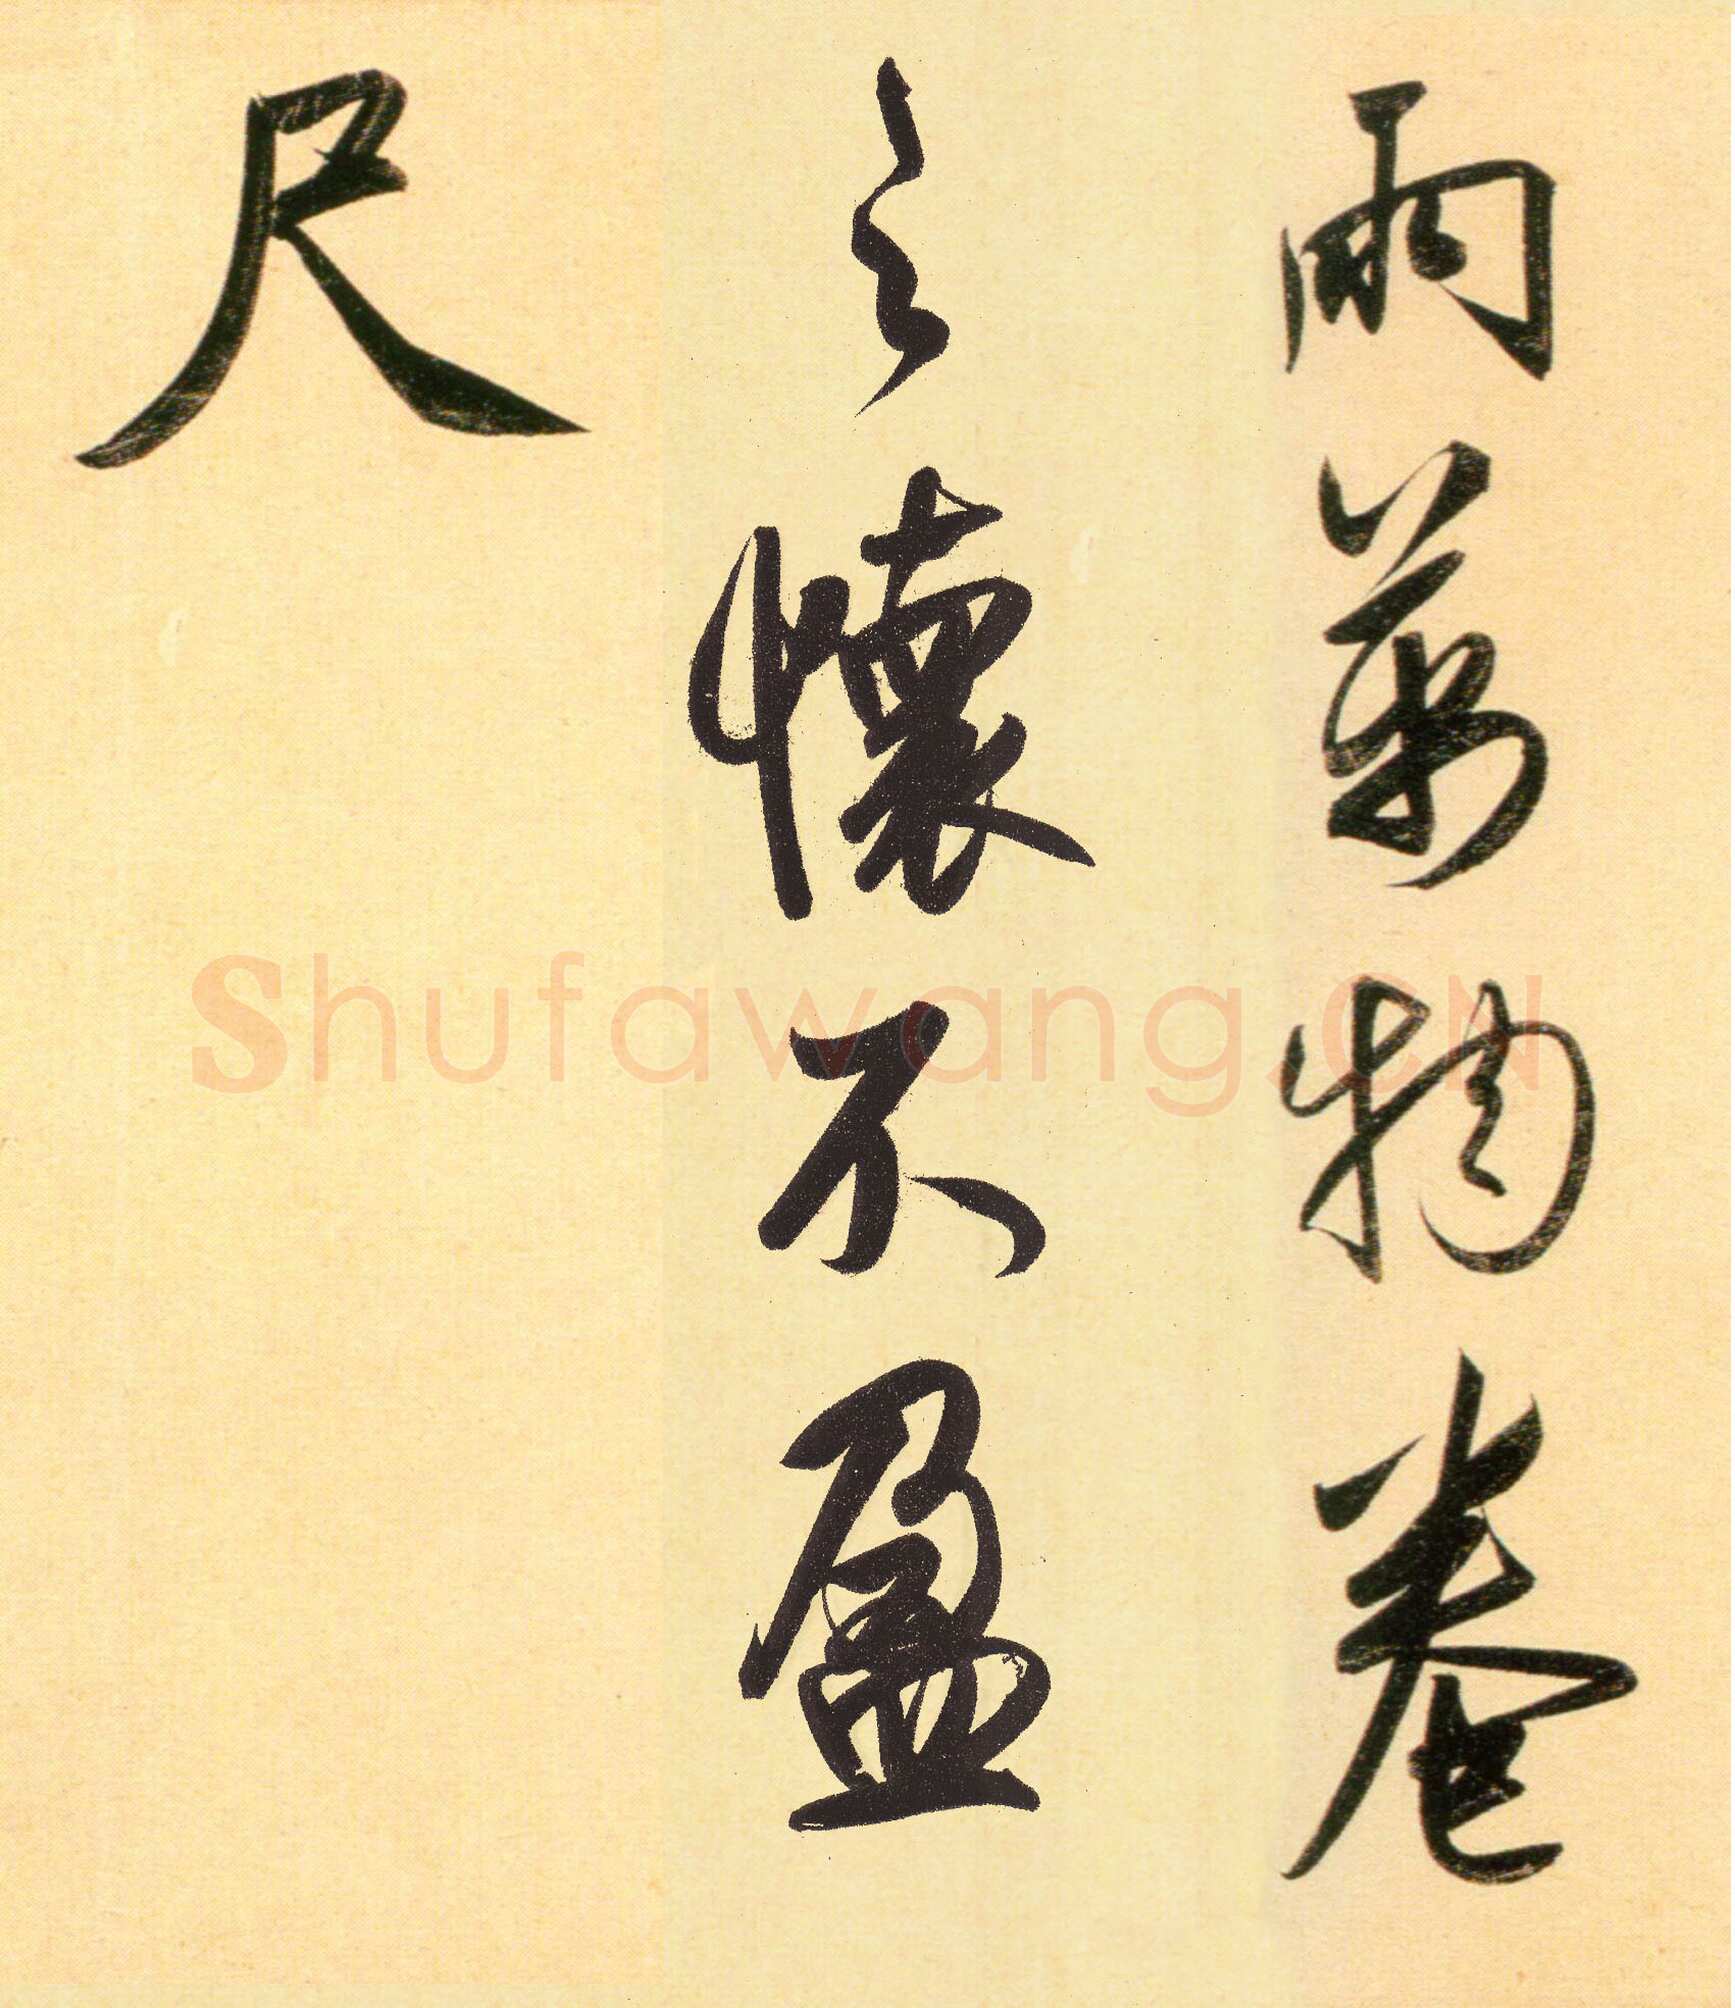 雨萬物卷
之懷不盈
尺
Shufawang.CN